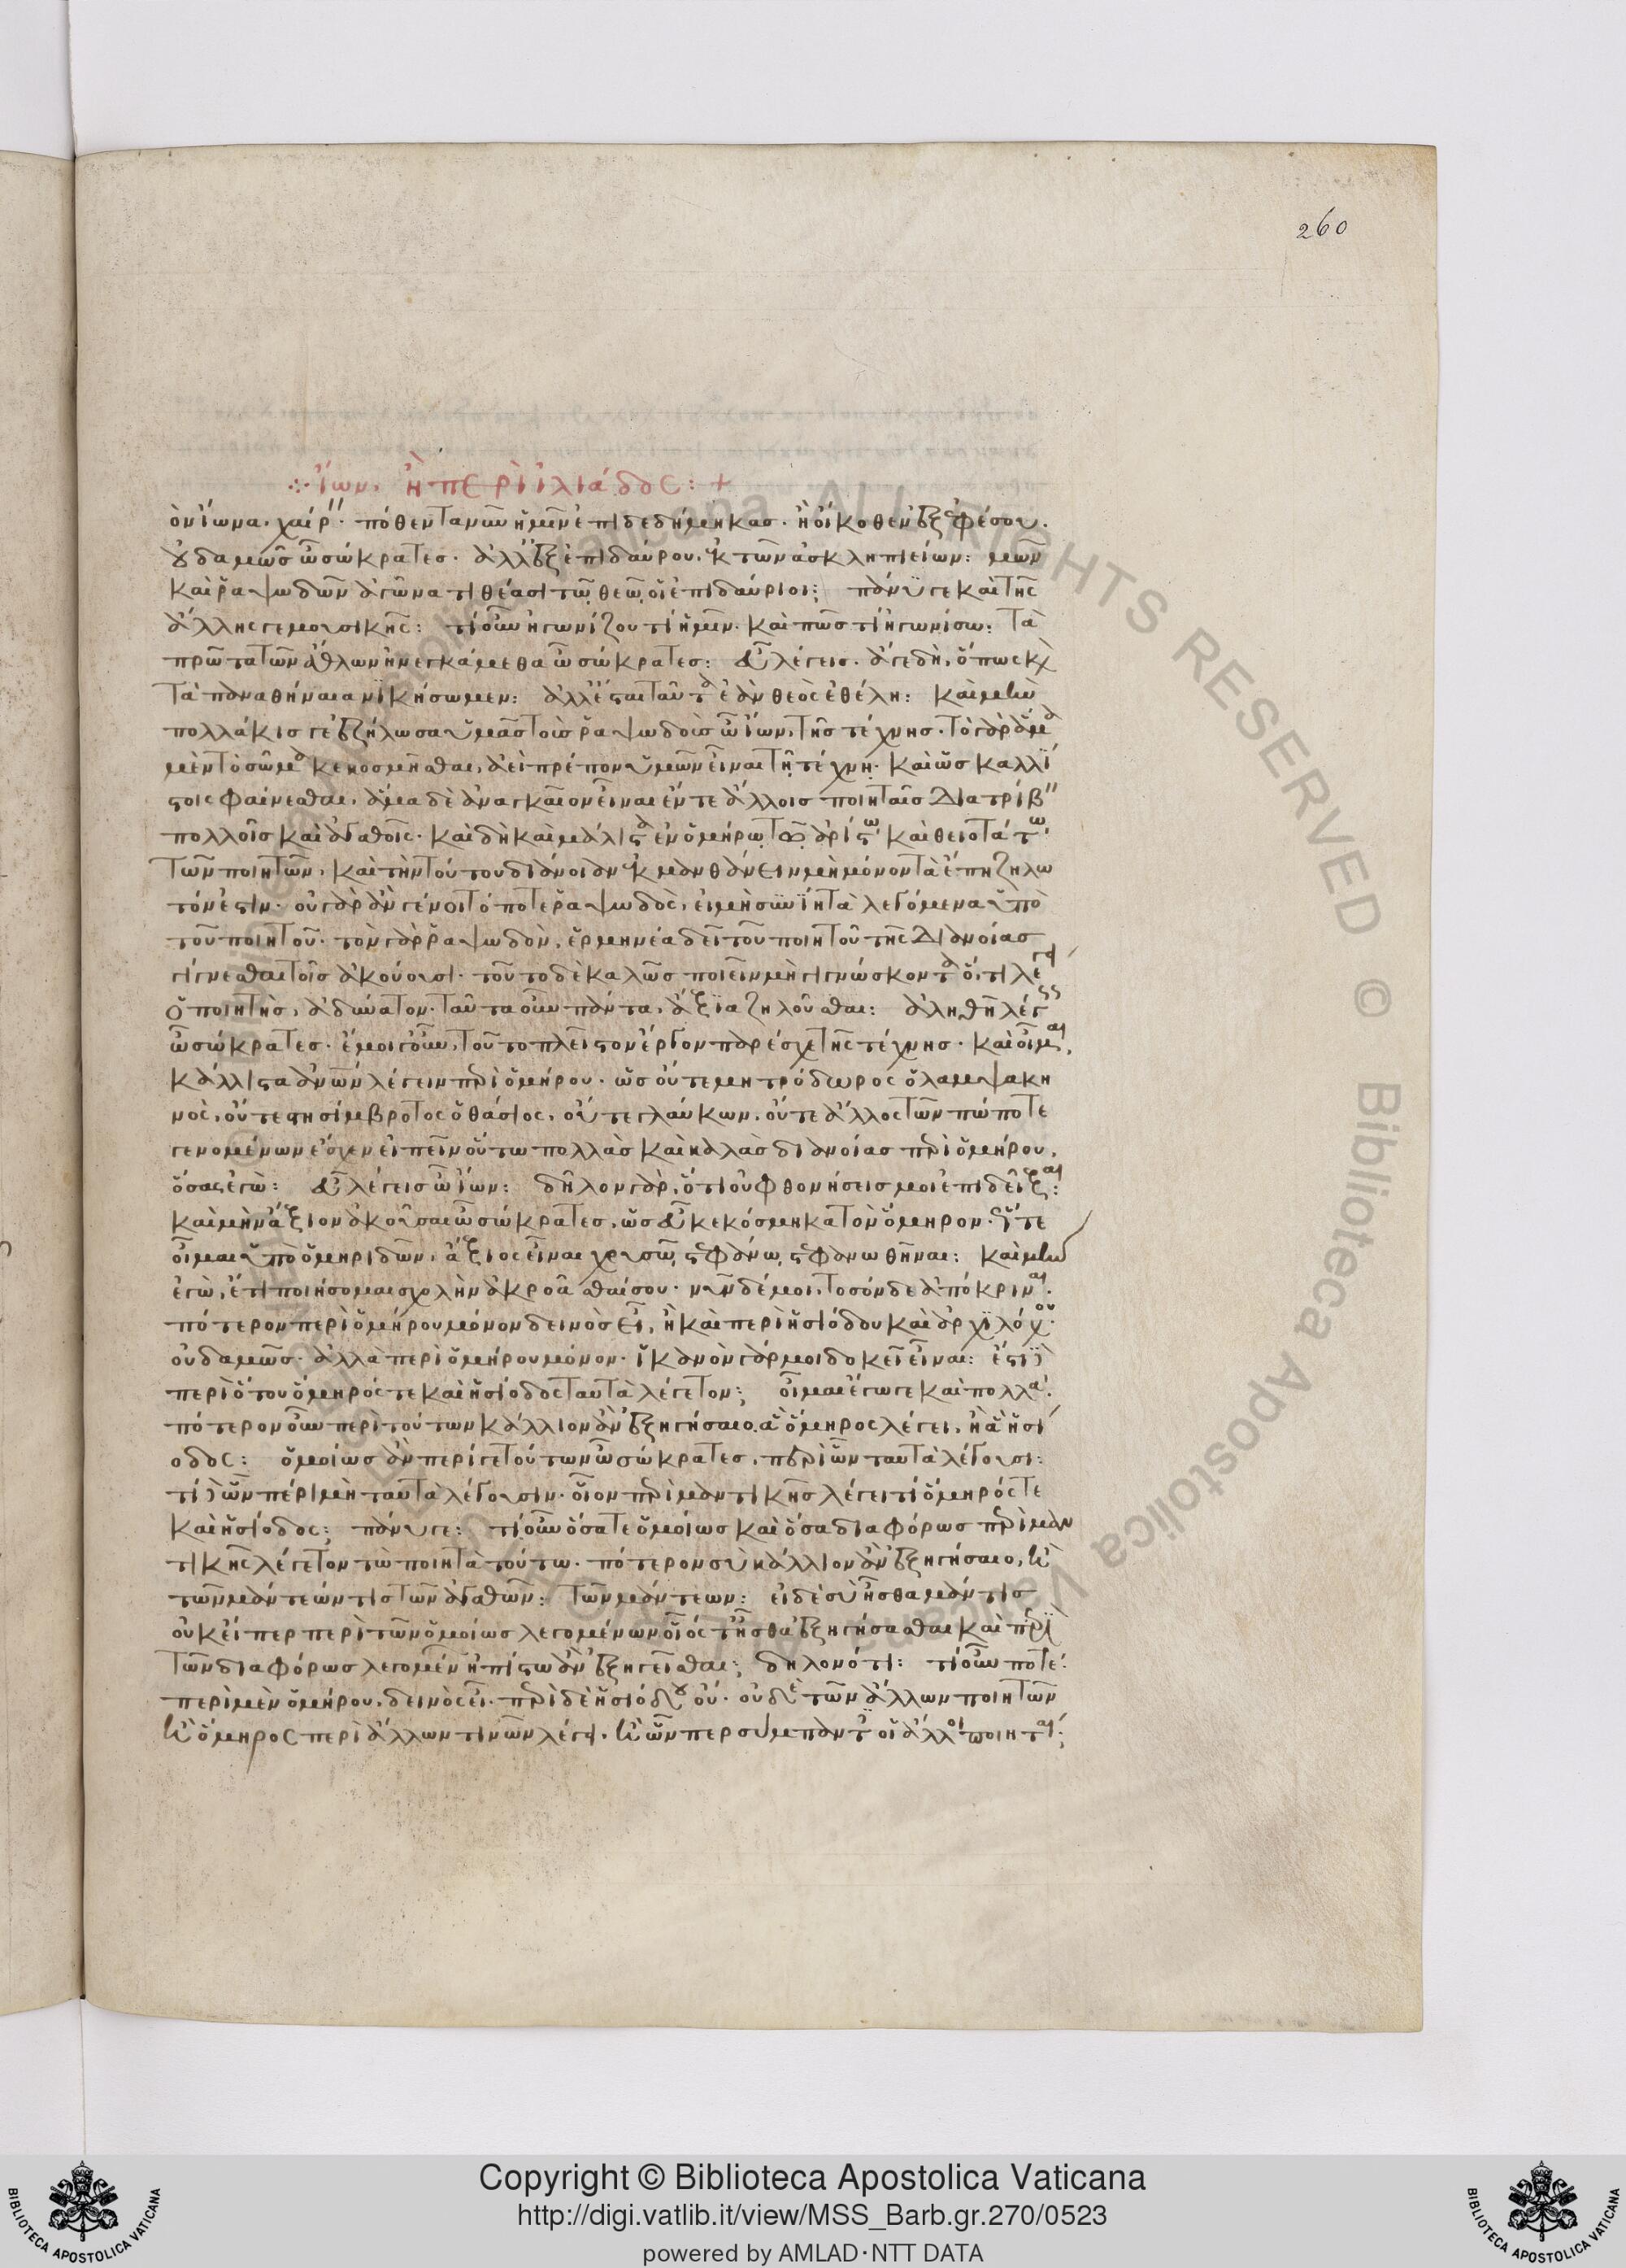 260
Ἴων, ἢ περὶ ἰλιάδος: +
ὸν ἴωνα χαίρειν· πόθεν τανῦν ἡμῖν ἐπιδεδήμηκας· ἢ οἴκοθεν ἐξ ἐφέσου·
οὐδαμῶς ὦ σώκρατες· ἀλλ' ἐξ ἐπιδαύρου, ἐκ τῶν ἀσκληπιείων: μῶν
καὶ ῥαψωδῶν ἀγῶνα τιθέασι τῷ θεῷ οἱ ἐπιδαύριοι; πάνυ γε καὶ τῆς
ἄλλης γε μουσικῆς: τί οὖν ἠγωνίζου τί ἡμῖν· καὶ πῶς τί ἠγωνίσω: Τὰ
πρῶτα τῶν ἄθλων ἠνεγκάμεθα ὦ σώκρατες: εὖ λέγεις. ἄγε δὴ, ὅπως καὶ
τὰ παναθήναια νικήσωμεν: ἀλλ' ἔσται ταῦτα ἐὰν θεὸς ἐθέλη: Καὶ μὴν
πολλάκις γε ἐζήλωσα ὑμᾶς τοὺς ῥαψωδοὺς ὦ ἴων, τῆς τέχνης· τὸ γὰρ ἅμα
μὲν τὸ σῶμα κεκοσμῆσθαι, ἀεὶ πρέπον ὑμῶν εἶναι τῇ τέχνῃ· καὶ ὡς καλλί
στοις φαίνεσθαι, ἅμα δὲ ἀναγκαῖον εἶναι ἔν τε ἄλλοις ποιηταῖς διατρίβειν
πολλοῖς καὶ ἀγαθοῖς· καὶ δὴ καὶ μάλιστα ἐν ὁμήρῳ τῷ ἀρίστῳ καὶ θειοτάτῳ
τῶν ποιητῶν, καὶ τὴν τούτου διάνοιαν ἐκμανθάνειν μὴ μόνον τὰ ἔπη ζηλω
τόν ἐστιν· οὐ γὰρ ἂν γένοιτό ποτε ῥαψωδὸς, εἰ μὴ συνίη τὰ λεγόμενα ὑπὸ
τοῦ ποιητοῦ· τὸν γὰρ ῥαψωδὸν, ἑρμηνέα δεῖ τοῦ ποιητοῦ τῆς διανοίας
γίγνεσθαι τοῖς ἀκούουσι· τοῦτο δὲ καλῶς ποιεῖν μὴ γιγνώσκοντα ὅ, τι λέγει
ὁ ποιητὴς, ἀδύνατον· ταῦτα οὖν πάντα, ἄξια ζηλοῦσθαι: ἀληθῆ λέγεις
ὦ σώκρατες· ἐμοὶ γοῦν, τοῦτο πλεῖστον ἔργον παρέσχε τῆς τέχνης· καὶ οἶμαι
κάλλιστα ἀνθρώπων λέγειν περὶ ὁμήρου· ὡς οὔτε μητρόδωρος ὁ λαμψακη
νὸς, οὔτε στησίμβροτος ὁ θάσιος, οὔτε γλαύκων, οὔτε ἄλλος τῶν πώποτε
γενομένων ἔσχεν εἰπεῖν οὕτω πολλὰς καὶ καλὰς διανοίας περὶ ὁμήρου,
ὅσας ἐγὼ: εὖ λέγεις ὦ ἴων: δῆλον γὰρ, ὅτι οὐ φθονήσεις μοι ἐπιδεῖξαι:
καὶ μὴν ἄξιον ἀκοῦσαι ὦ σώκρατες, ὡς εὖ κεκόσμηκα τὸν ὅμηρον· ὥστε
οἶμαι ὑπὸ ὁμηριδῶν, ἄξιος εἶναι χρυσῷ στεφάνῳ στεφανωθῆναι: Καὶ μὴν
ἐγὼ, ἔτι ποιήσομαι σχολὴν ἀκροᾶσθαί σου· νῦν δέ μοι, τοσόνδε ἀπόκριναι·
πότερον περὶ ὁμήρου μόνον δεινὸς εἶ, ἢ καὶ περὶ ἡσιόδου καὶ ἀρχιλόχου·
οὐδαμῶς· ἀλλὰ περὶ ὁμήρου μόνον· ἱκανὸν γάρ μοι δοκεῖ εἶναι: ἔστι δὲ
περὶ ὅτου ὅμηρός τε καὶ ἡσίοδος ταυτὰ λέγετον; οἶμαι ἔγωγε καὶ πολλά·
πότερον οὖν περὶ τούτων κάλλιον ἂν ἐξηγήσαιο ἃ ὅμηρος λέγει, ἢ ἃ ἡσί
οδος: ὁμοίως ἂν περί γε τούτων ὦ σώκρατες, περὶ ὧν ταυτὰ λέγουσι:
τί δὲ ὧν πέρι μὴ ταυτὰ λέγουσιν· οἷον περὶ μαντικῆς λέγει τί ὅμηρός τε
καὶ ἡσίοδος: πάνυ γε: τί οὖν ὅσα τε ὁμοίως καὶ ὅσα διαφόρως περὶ μαν
τικῆς λέγετον τὼ ποιητὰ τούτω· πότερον σὺ κάλλιον ἂν ἐξηγήσαιο, ἢ
τῶν μάντεών τις τῶν ἀγαθῶν: τῶν μάντεων: εἰ δὲ σὺ ἦσθα μάντις
οὐκ εἴπερ περὶ τῶν ὁμοίως λεγομένων οἷός τ' ἦσθα ἐξηγήσασθαι καὶ περὶ
τῶν διαφόρως λεγομένων ἠπίστω ἂν ἐξηγεῖσθαι; δηλονότι: τί οὖν ποτε
περὶ μὲν ὁμήρου, δεινὸς εἶ· περὶ δὲ ἡσιόδου οὔ· οὐδὲ τῶν ἄλλων ποιητῶν
ἢ ὅμηρος περὶ ἄλλων τινῶν λέγει, ἢ ὧνπερ σύμπαντες οἱ ἄλλοι ποιηταί;
ALL RIGHTS RESERVED © Biblioteca Apostolica Vaticana
Copyright © Biblioteca Apostolica Vaticana
http://digi.vatlib.it/view/MSS_Barb.gr.270/0523
powered by AMLAD·NTT DATA
BIBLIOTECA APOSTOLICA VATICANA
BIBLIOTECA APOSTOLICA VATICANA